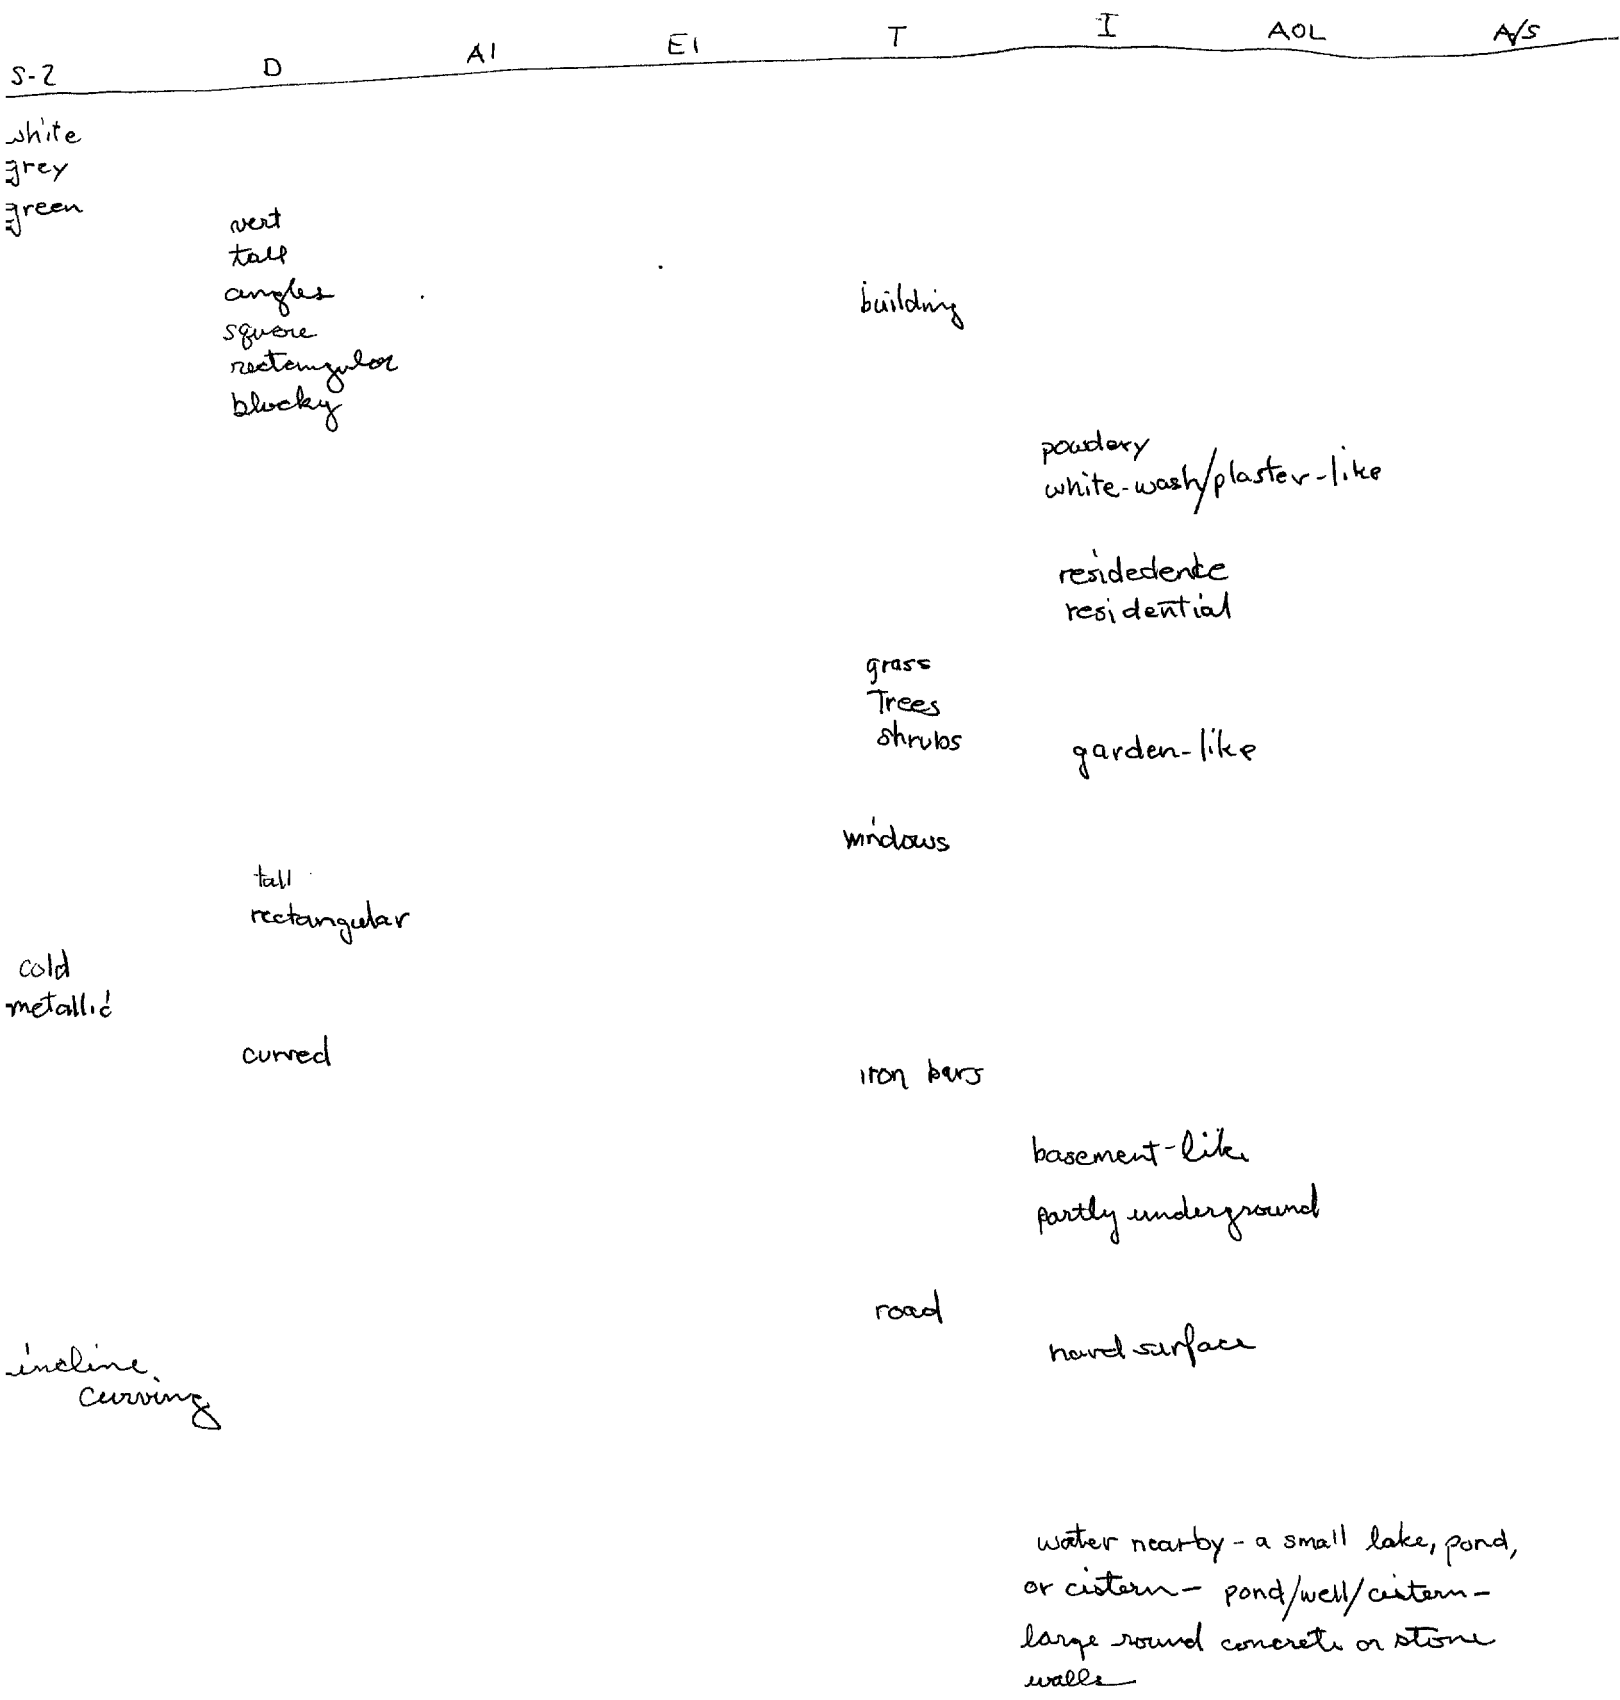 S-2 D AI EI T I AOL A/S
white
grey
green
vert
tall
angles
building
square
rectangular
blocky
powdery
white-wash/plaster-like
residedence
residential
grass
Trees
shrubs garden-like
windows
tall
rectangular
cold
metallic
curved
iron bars
basement-like
partly underground
road
hard surface
incline
curving
water nearby - a small lake, pond,
or cistern - pond/well/cistern -
large round concrete or stone
walls